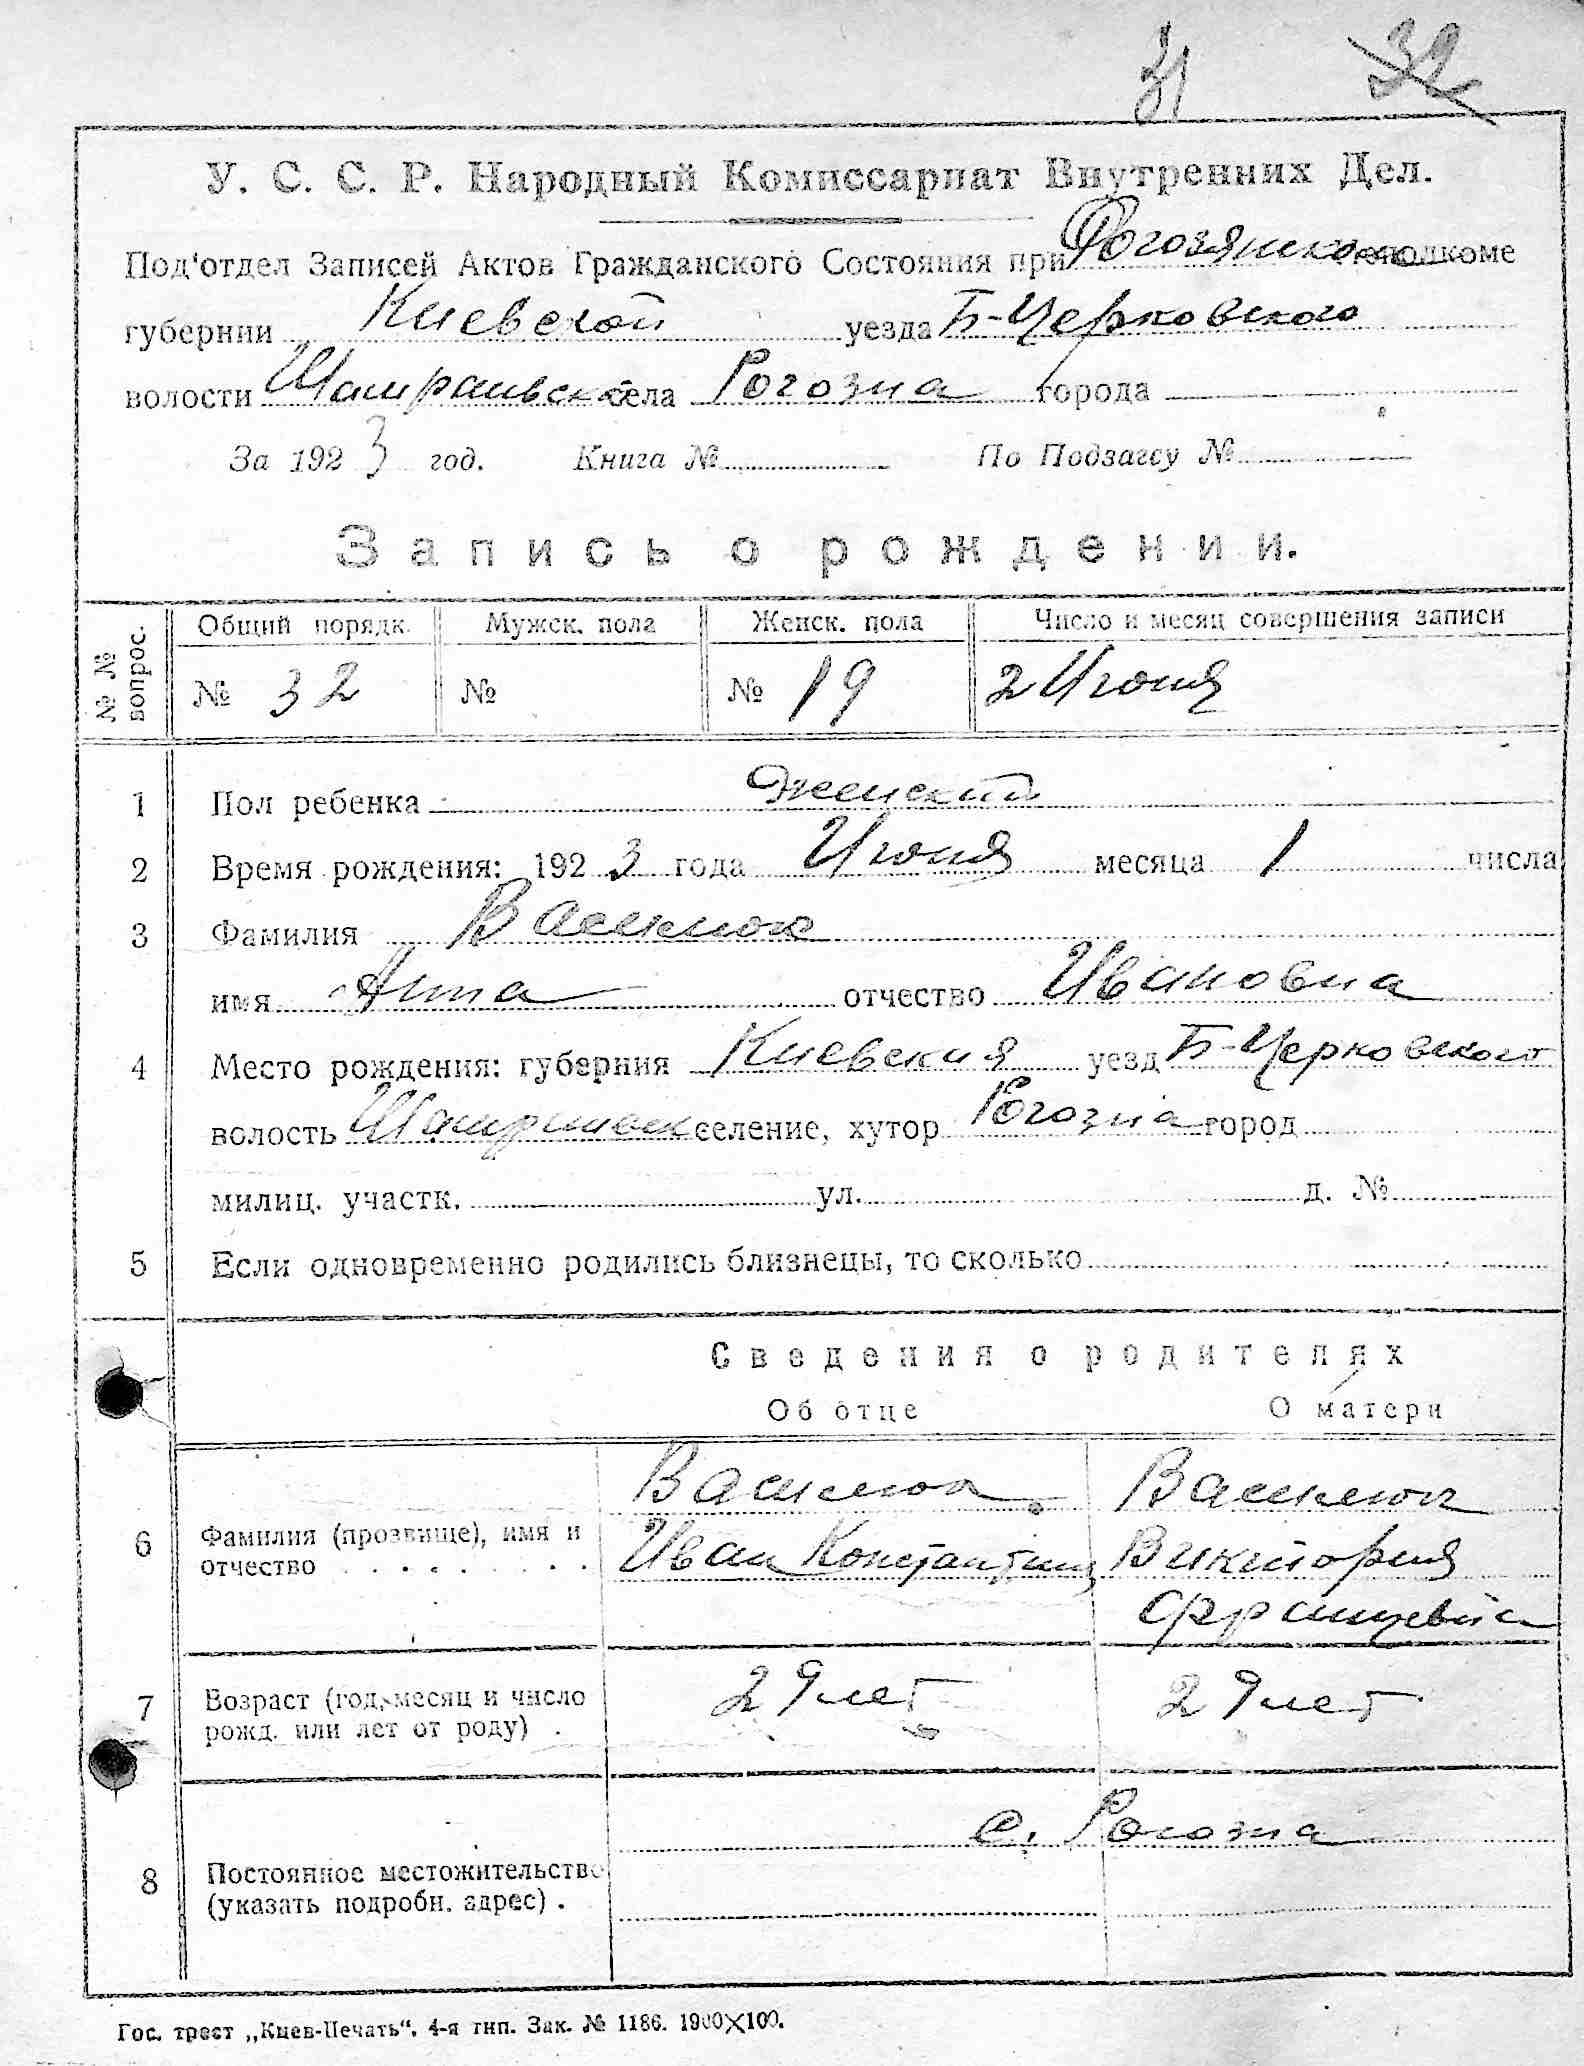 31 32
У. С. С. Р. Народный Комиссариат Внутренних Дел.
Под'отдел Записей Актов Гражданского Состояния при Рогозянском исполкоме
губернии Киевской уезда Б-Черковского
волости села Рогозна города
За 1923 год. Книга № По Подзагсу №
Запись о рождении.
№ № вопрос. Общий порядк. Мужск. пола Женск. пола Число и месяц совершения записи
№ 32 № № 19 2 Июня
1 Пол ребенка женский
2 Время рождения: 1923 года Июня месяца 1 числа
3 Фамилия Васклюк
имя Анна отчество Ивановна
4 Место рождения: губерния Киевския уезд Б-Черковского
волость селение, хутор Рогозна город
милиц. участк. ул. д. №
5 Если одновременно родились близнецы, то сколько
Сведения о родителях
Об отце О матери
6 Фамилия (прозвище), имя и отчество
Иван Константин Виктория
Францевна
7 Возраст (год, месяц и число рожд. или лет от роду) 29 лет 29 лет
8 Постоянное местожительство (указать подробн. адрес) с. Рогозна
Гос. трест „Киев-Печать“. 4-я тип. Зак. № 1186. 1900×100.